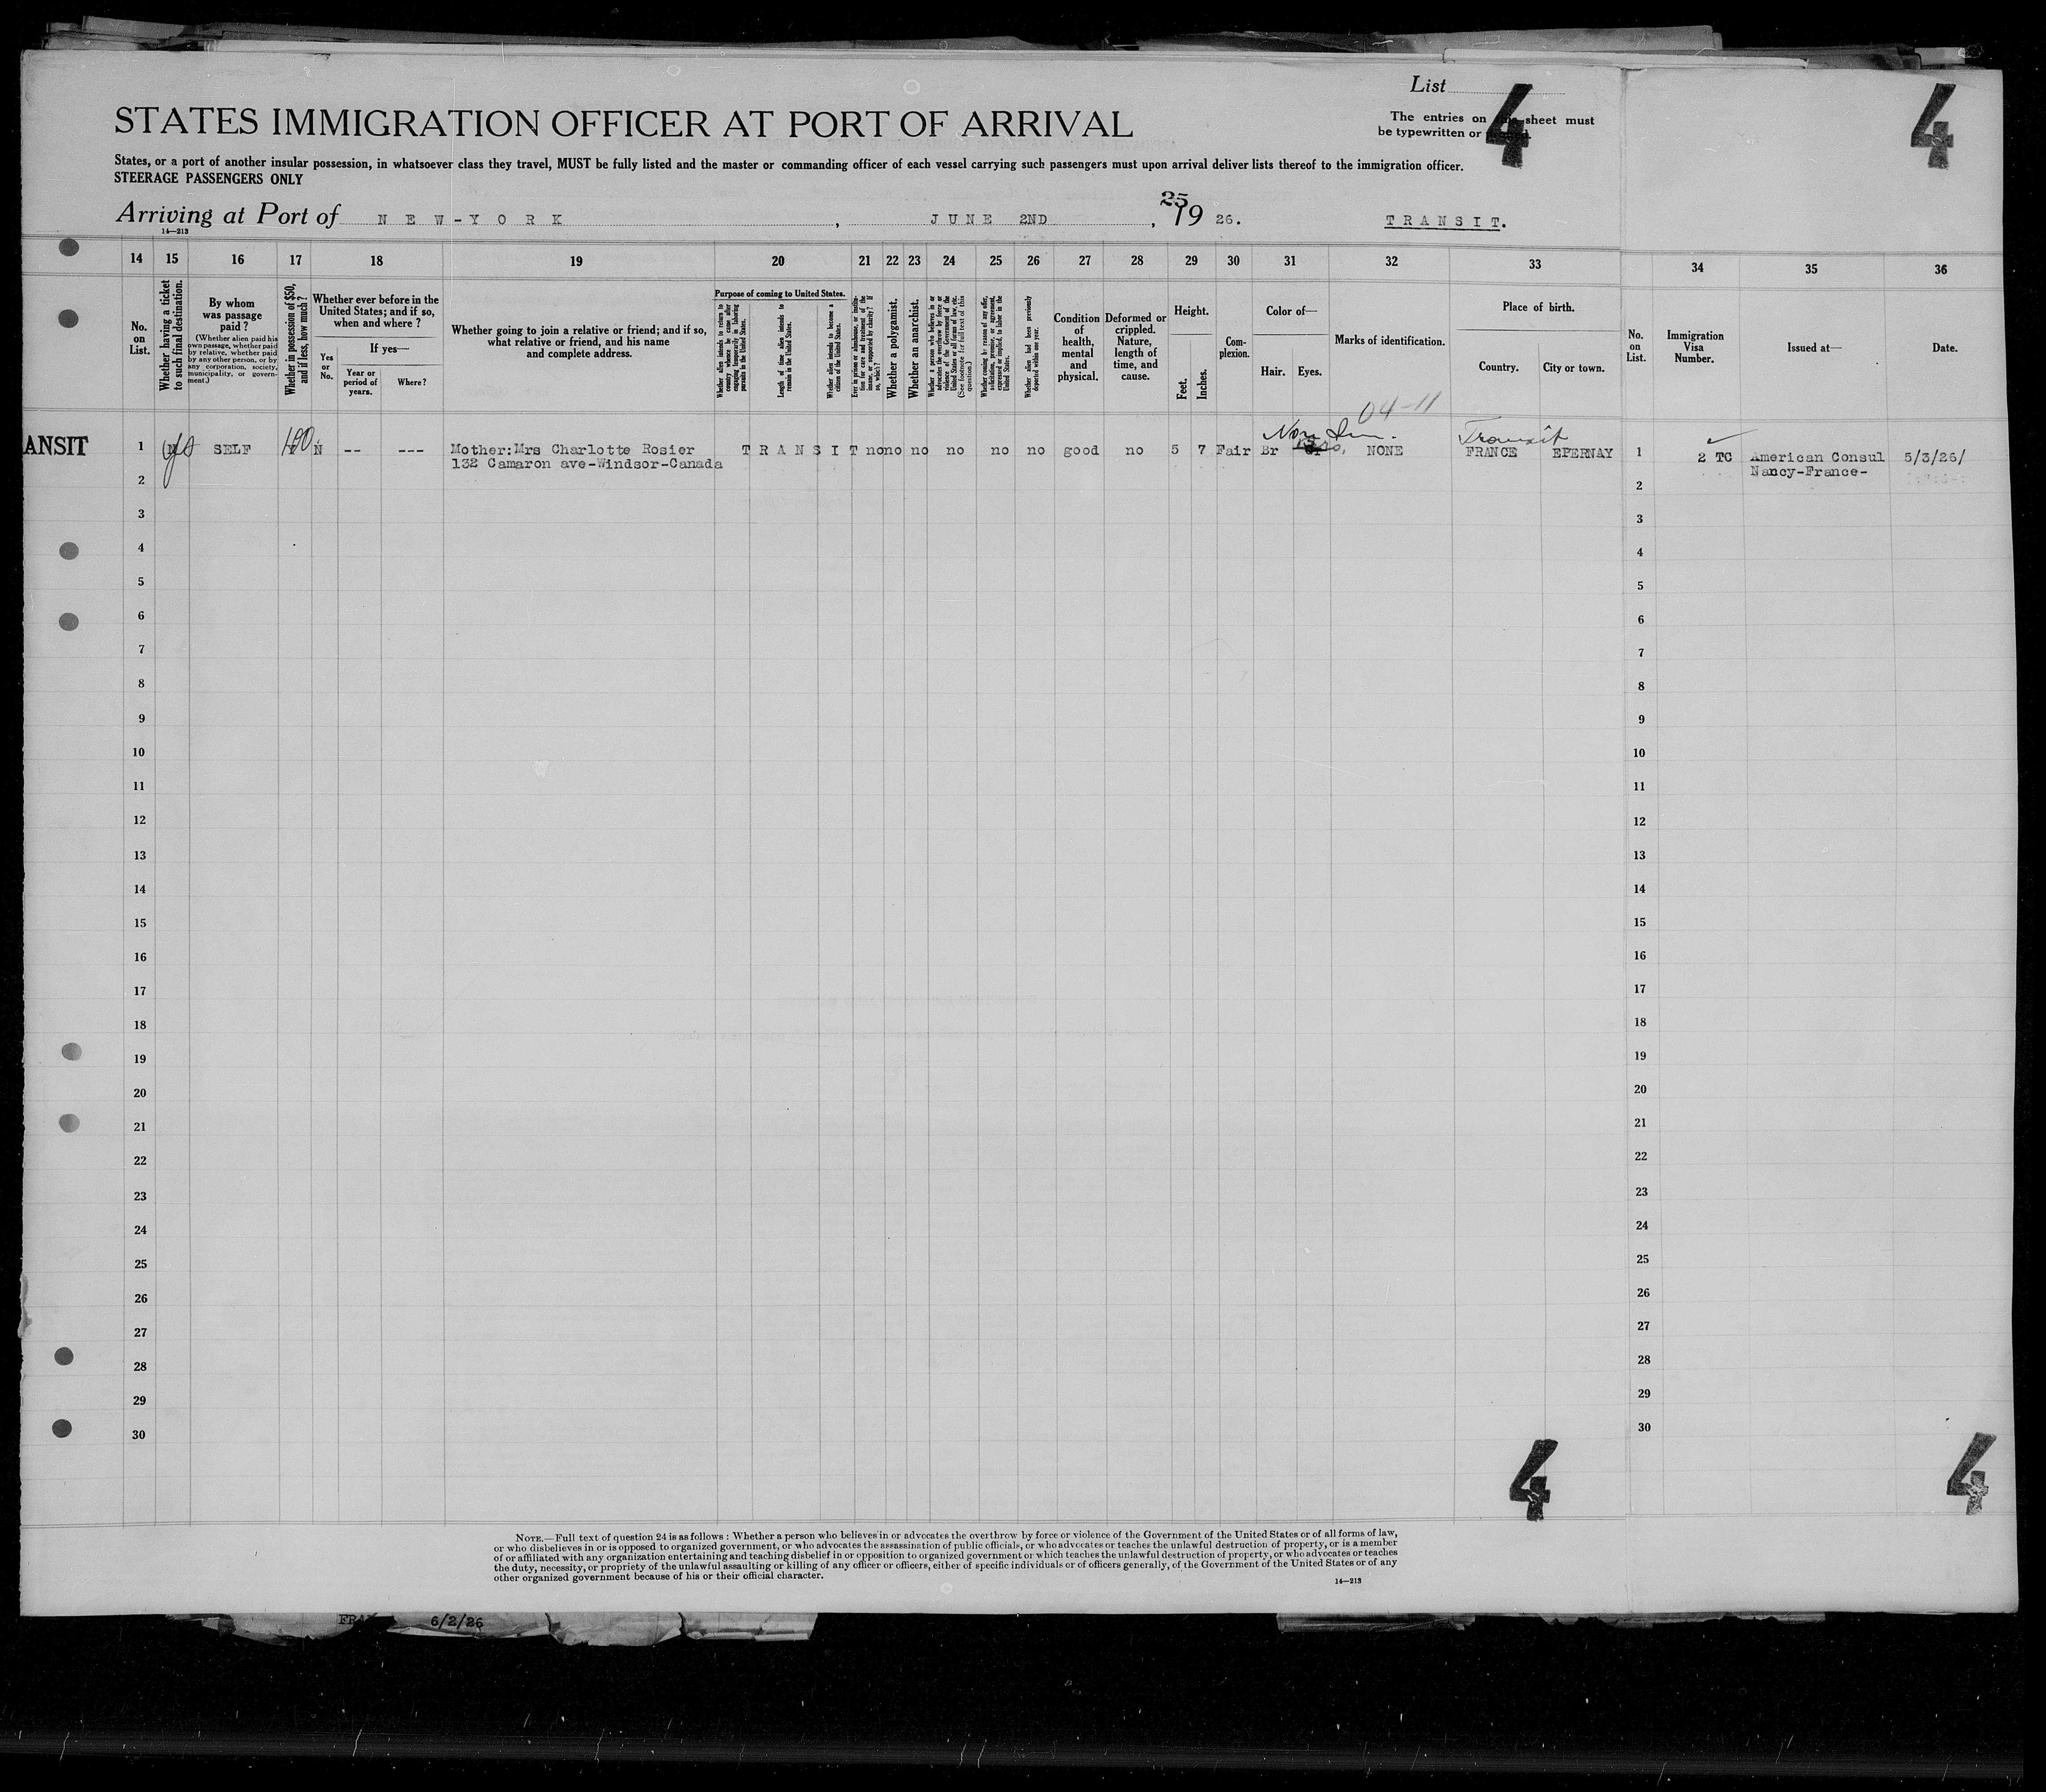 List
4
4
STATES IMMIGRATION OFFICER AT PORT OF ARRIVAL
The entries on sheet must
be typewritten or
States, or a port of another insular possession, in whatsoever class they travel, MUST be fully listed and the master or commanding officer of each vessel carrying such passengers must upon arrival deliver lists thereof to the immigration officer.
STEERAGE PASSENGERS ONLY
Arriving at Port of NEW-YORK, JUNE 2ND, 1926. TRANSIT.
25
14—213
14 15 16 17 18 19 20 21 22 23 24 25 26 27 28 29 30 31 32 33 34 35 36
No. on List.
Whether having a ticket to such final destination.
By whom was passage paid?
(Whether alien paid his own passage, whether paid by relative, whether paid by any other person, or by any corporation, society, municipality, or government.)
Whether in possession of $50, and if less, how much?
Whether ever before in the United States; and if so, when and where?
Yes or No.
If yes—
Year or period of years.
Where?
Whether going to join a relative or friend; and if so, what relative or friend, and his name and complete address.
Purpose of coming to United States.
Whether alien intends to return to country whence he came after engaging temporarily in laboring pursuits in the United States.
Length of time alien intends to remain in the United States.
Whether alien intends to become a citizen of the United States.
Ever in prison or almshouse, or institution for care and treatment of the insane, or supported by charity? If so, which?
Whether a polygamist.
Whether an anarchist.
Whether a person who believes in or advocates the overthrow by force or violence of the Government of the United States or all forms of law, etc. (See footnote for full text of this question.)
Whether coming by reason of any offer, solicitation, promise, or agreement, expressed or implied, to labor in the United States.
Whether alien had been previously deported within one year.
Condition of health, mental and physical.
Deformed or crippled. Nature, length of time, and cause.
Height.
Feet.
Inches.
Complexion.
Color of—
Hair.
Eyes.
Marks of identification.
Place of birth.
Country.
City or town.
No. on List.
Immigration Visa Number.
Issued at—
Date.
04-11
Non Im.
Transit
ANSIT 1 yes SELF 100 N -- --- Mother:Mrs Charlotte Rosier TRANSIT no no no no no no good no 5 7 Fair Br NONE FRANCE EPERNAY 1 2 TC American Consul 5/3/26/
132 Camaron ave-Windsor-Canada Nancy-France-
2 2
3 3
4 4
5 5
6 6
7 7
8 8
9 9
10 10
11 11
12 12
13 13
14 14
15 15
16 16
17 17
18 18
19 19
20 20
21 21
22 22
23 23
24 24
25 25
26 26
27 27
28 28
29 29
30 30
4
4
NOTE.—Full text of question 24 is as follows: Whether a person who believes in or advocates the overthrow by force or violence of the Government of the United States or of all forms of law,
or who disbelieves in or is opposed to organized government, or who advocates the assassination of public officials, or who advocates or teaches the unlawful destruction of property, or is a member
of or affiliated with any organization entertaining and teaching disbelief in or opposition to organized government or which teaches the unlawful destruction of property, or who advocates or teaches
the duty, necessity, or propriety of the unlawful assaulting or killing of any officer or officers, either of specific individuals or of officers generally, of the Government of the United States or of any
other organized government because of his or their official character.
14—213
6/2/26